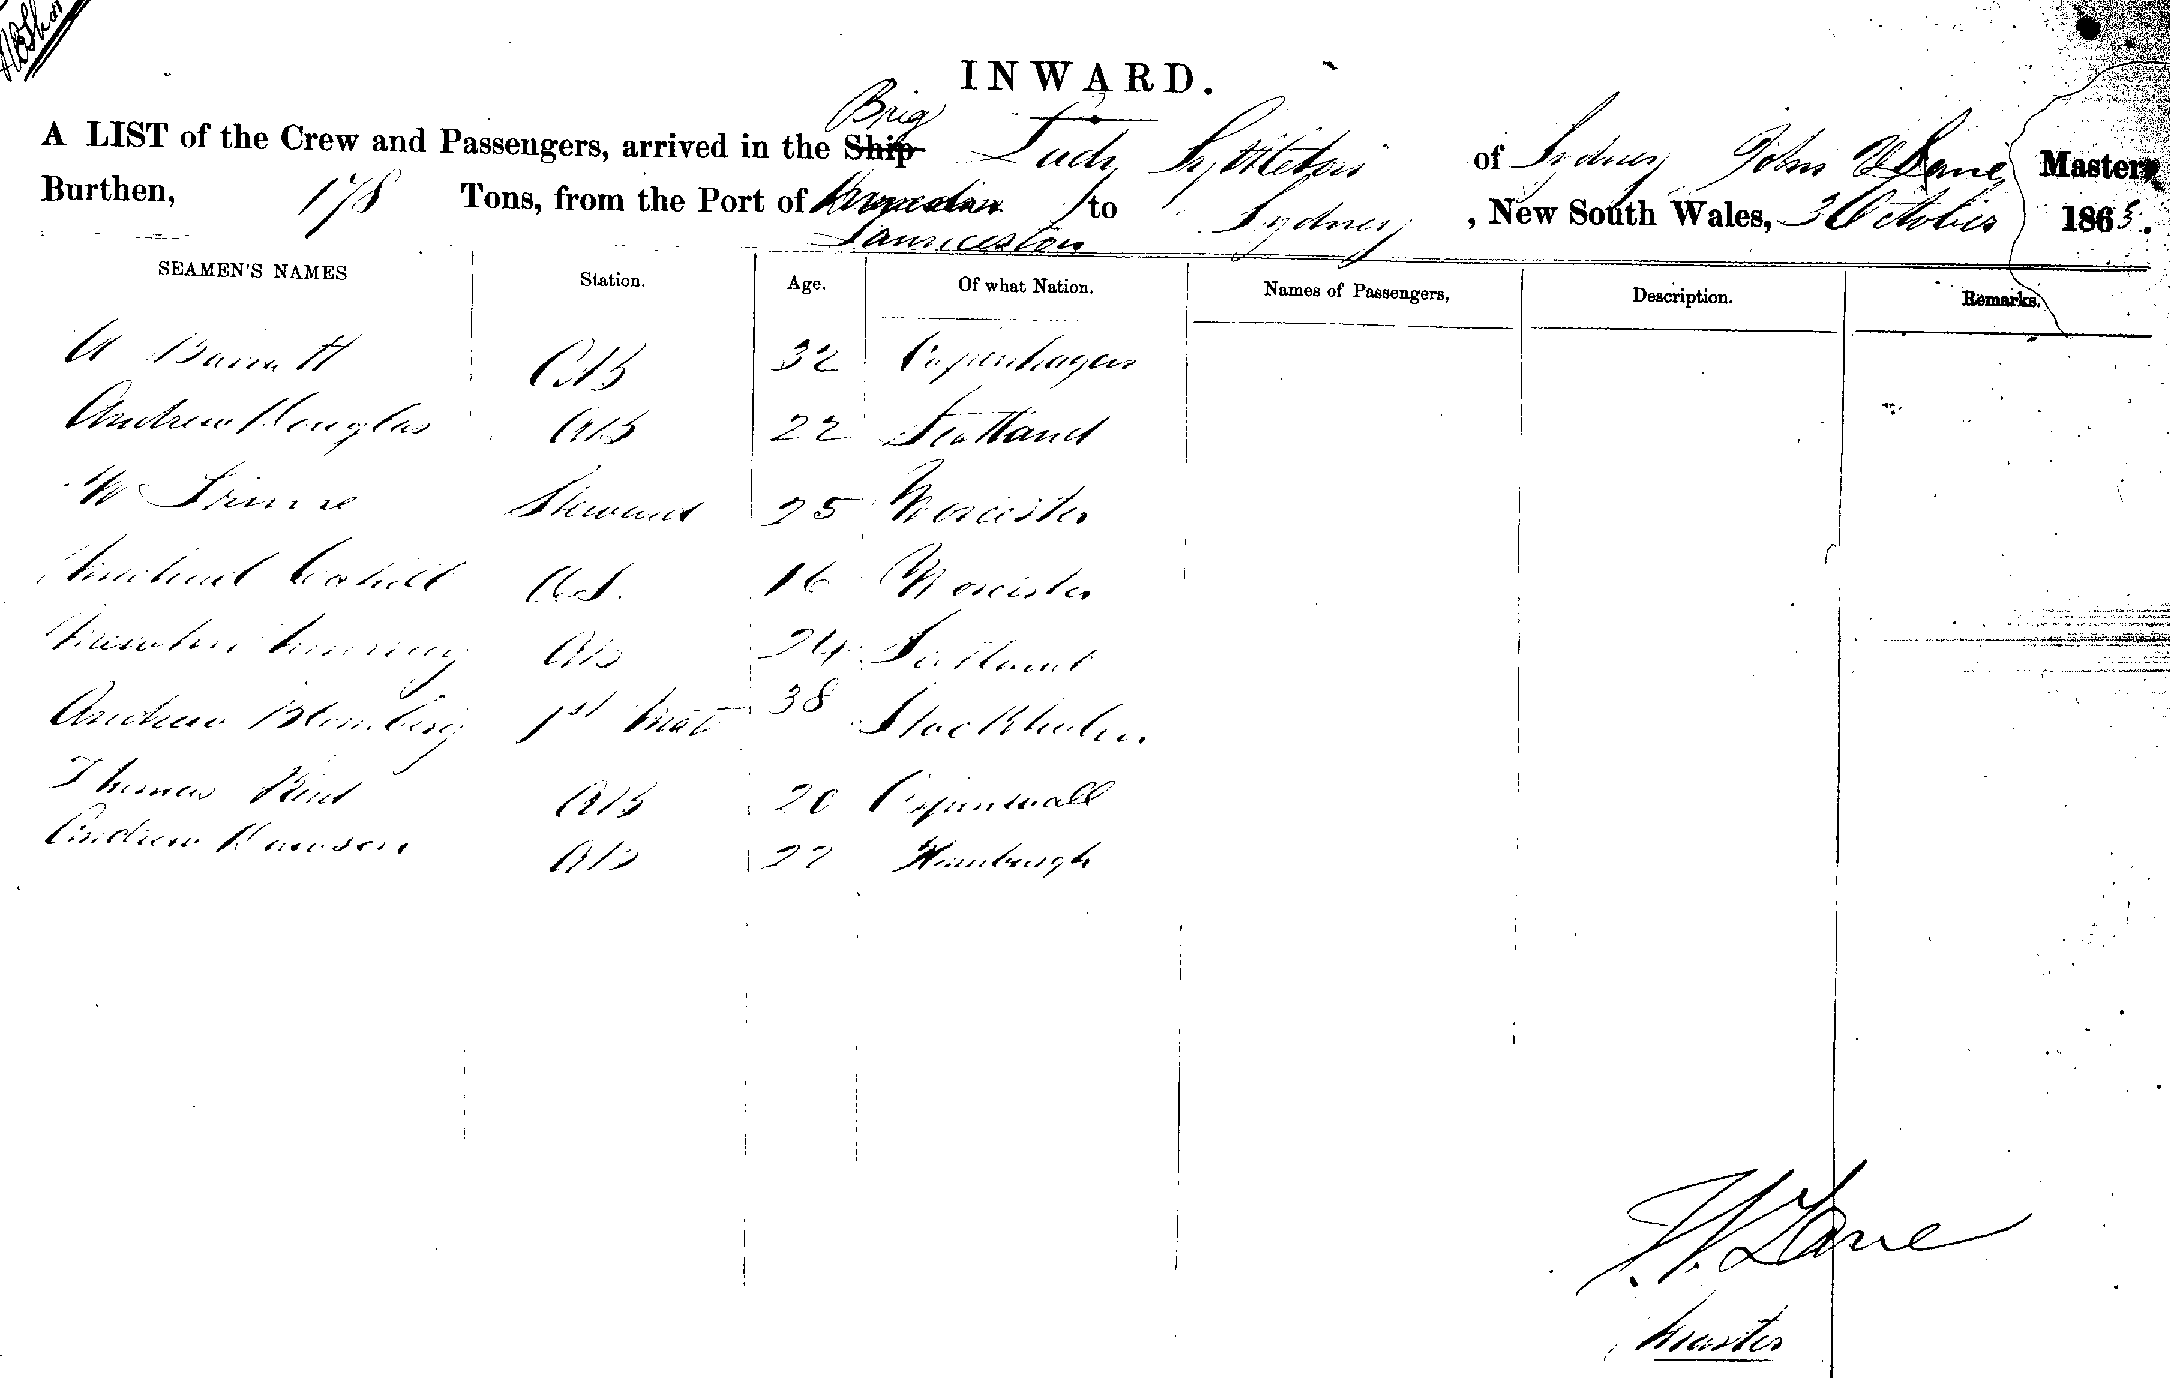 INWARD.
Brig
A LIST of the Crew and Passengers, arrived in the Ship Lady Lyttleton of Sydney John Lane Master,
Burthen, 178 Tons, from the Port of to Sydney, New South Wales, 3 October 1863.
Launceston
SEAMEN'S NAMES Station. Age. Of what Nation. Names of Passengers, Description. Remarks.
A Barrett AB 32 Copenhagen
Andrew Douglas AB 22 Scotland
W Steward 25 Worcester
Michael Cahill OS. 16 Worcester
AB 24 Scotland
Andrew Blomberg 1st Mate 38 Stockholm
Thomas AB 20
Andrew Dawson AB 22 Hamburgh
J. V. Lane
Master